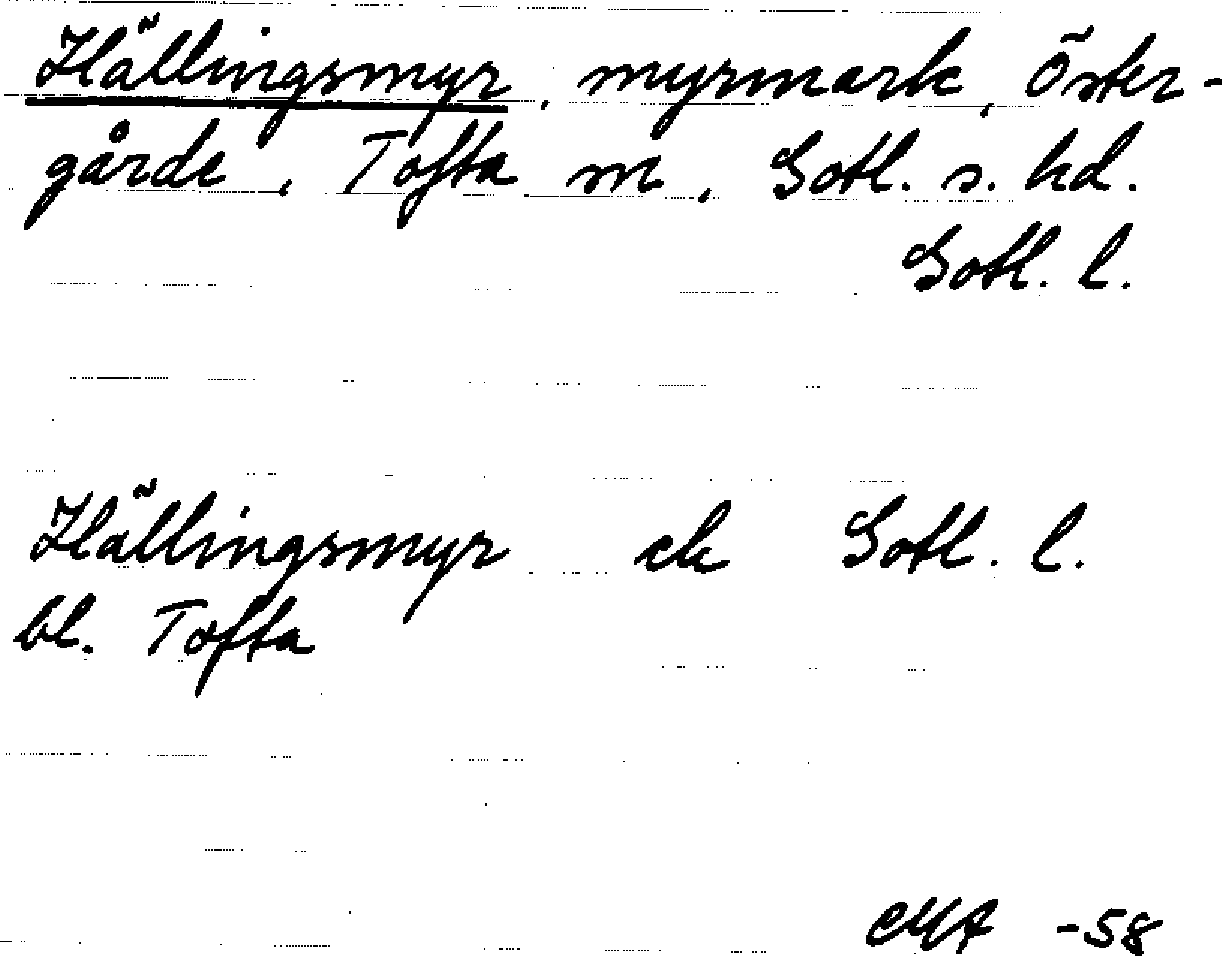 Hällingsmyr, myrmark, Öster-
gårde, Tofta sn, Gotl. s. hd.
Gotl. l.
Hällingsmyr ek Gotl. l.
bl. Tofta
-58